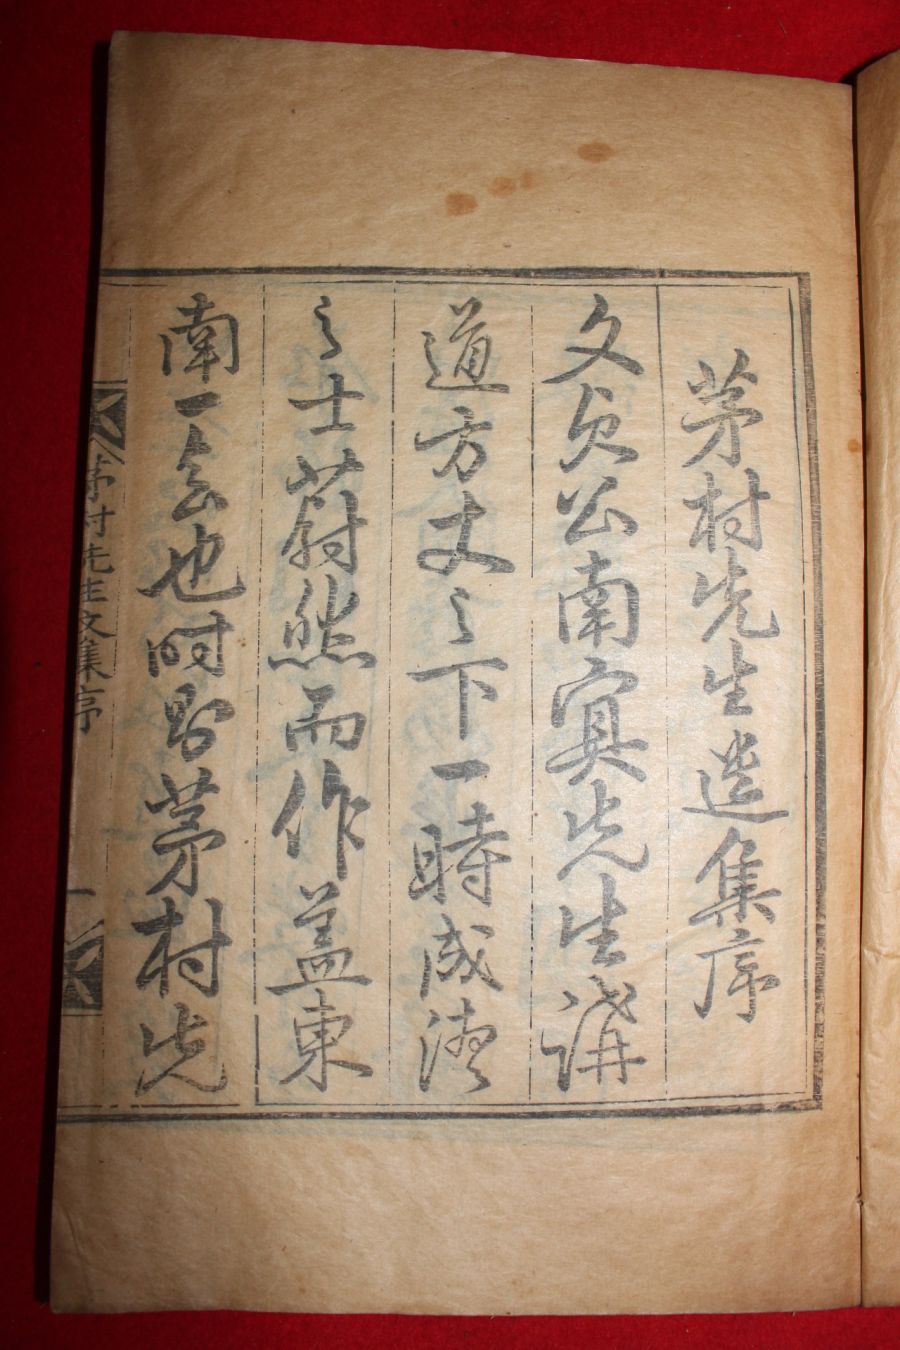 茅村先生遺集序
文貞公南冥先生講
道方丈之下一時成德
之士蔚然而作盖東
南一會也時則茅村先
茅村先生文集序
一